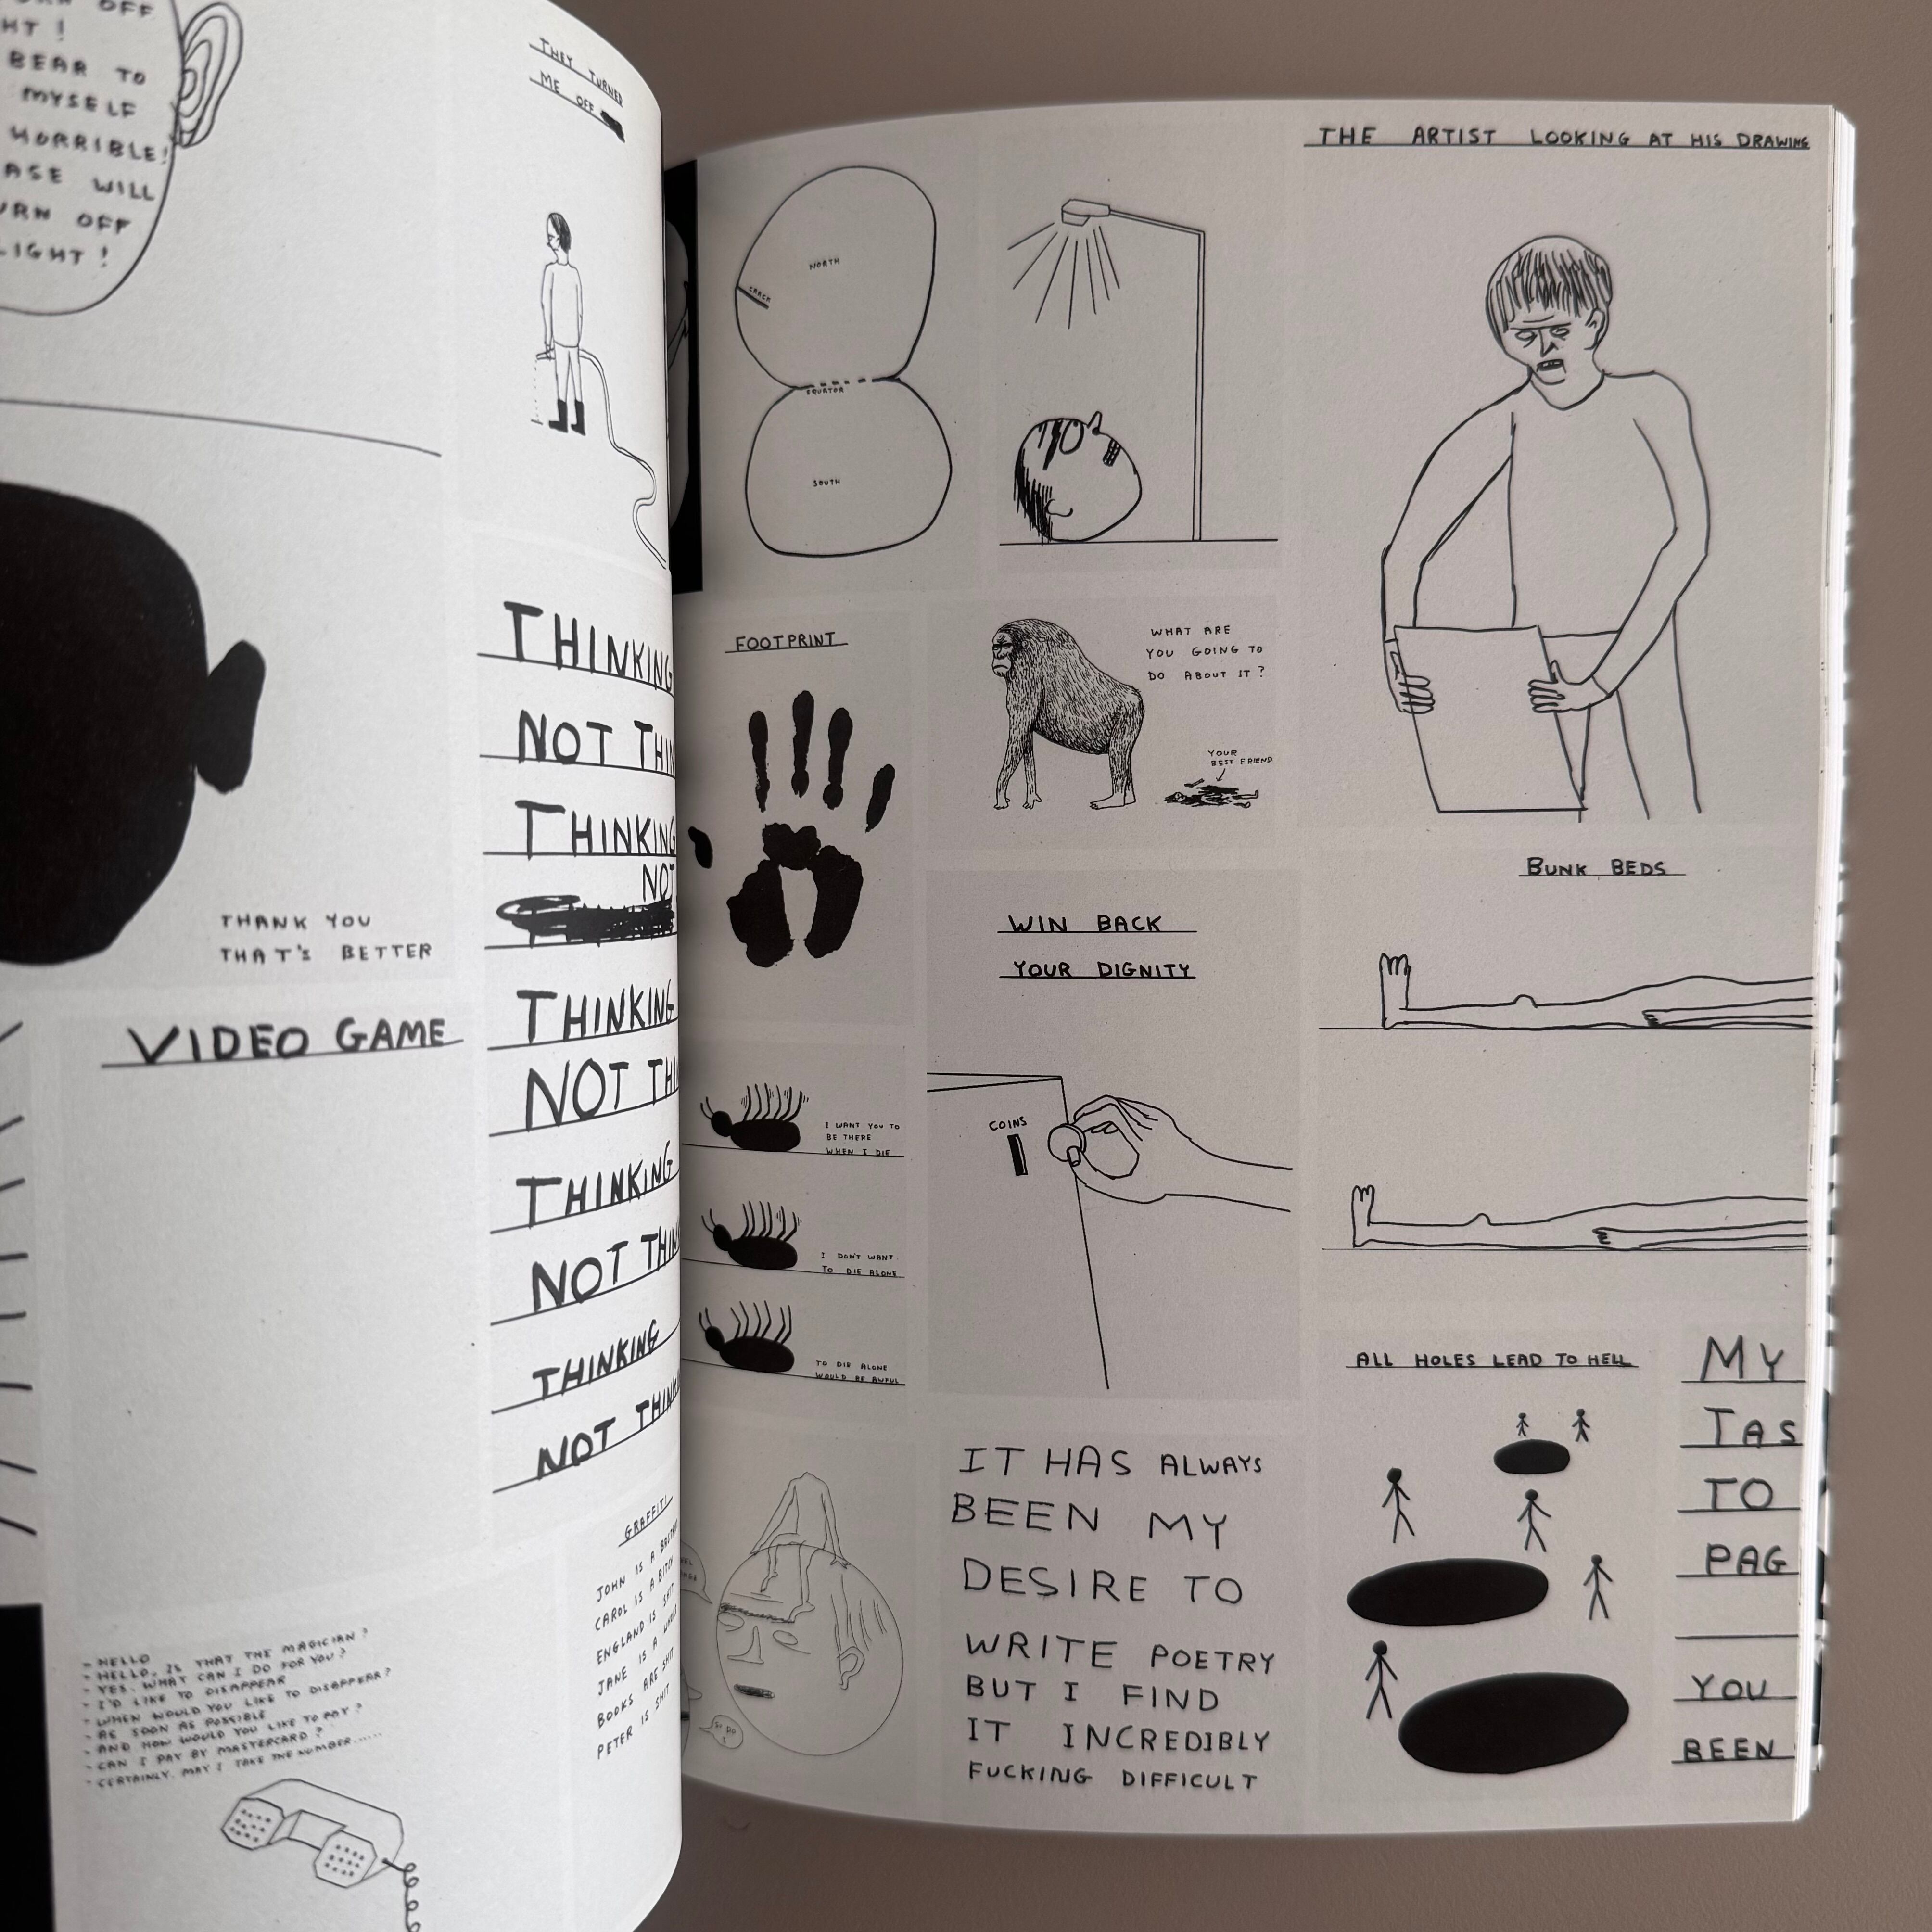 OFF
HT!
BEAR TO
MYSELF
HORRIBLE!
ASE WILL
URN OFF
LIGHT!
THANK YOU
THAT'S BETTER
VIDEO GAME
- HELLO
- HELLO, IS THAT THE MAGICIAN?
- YES. WHAT CAN I DO FOR YOU?
- I'D LIKE TO DISAPPEAR
- WHEN WOULD YOU LIKE TO DISAPPEAR?
- AS SOON AS POSSIBLE
- AND HOW WOULD YOU LIKE TO PAY?
- CAN I PAY BY MASTERCARD?
- CERTAINLY. MAY I TAKE THE NUMBER......
THEY TURNED
ME OFF
THINKING
NOT THIN
THINKING
NOT
THINKING
NOT THI
THINKING
NOT THIN
THINKING
NOT THINK
GRAFFITI
JOHN IS A
CAROL IS A BITCH
ENGLAND IS SHIT
JANE IS A
BOOKS ARE SHIT
PETER IS SHIT
NORTH
CRACK
EQUATOR
SOUTH
FOOTPRINT
WHAT ARE
YOU GOING TO
DO ABOUT IT?
YOUR
BEST FRIEND
I WANT YOU TO
BE THERE
WHEN I DIE
I DON'T WANT
TO DIE ALONE
TO DIE ALONE
WOULD BE AWFUL
WIN BACK
YOUR DIGNITY
COINS
IT HAS ALWAYS
BEEN MY
DESIRE TO
WRITE POETRY
BUT I FIND
IT INCREDIBLY
FUCKING DIFFICULT
THE ARTIST LOOKING AT HIS DRAWING
BUNK BEDS
ALL HOLES LEAD TO HELL
MY
TAS
TO
PAG
YOU
BEEN